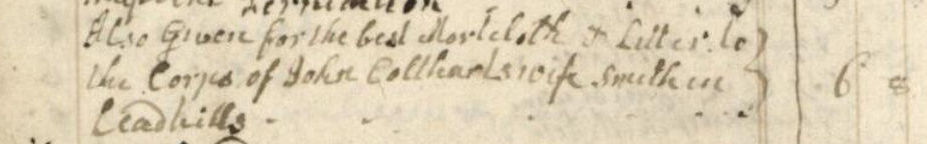 Also Given for the best Mortcloth & Litter to
the Corps of John Colthards wife Smith in 6 8
Leadhills